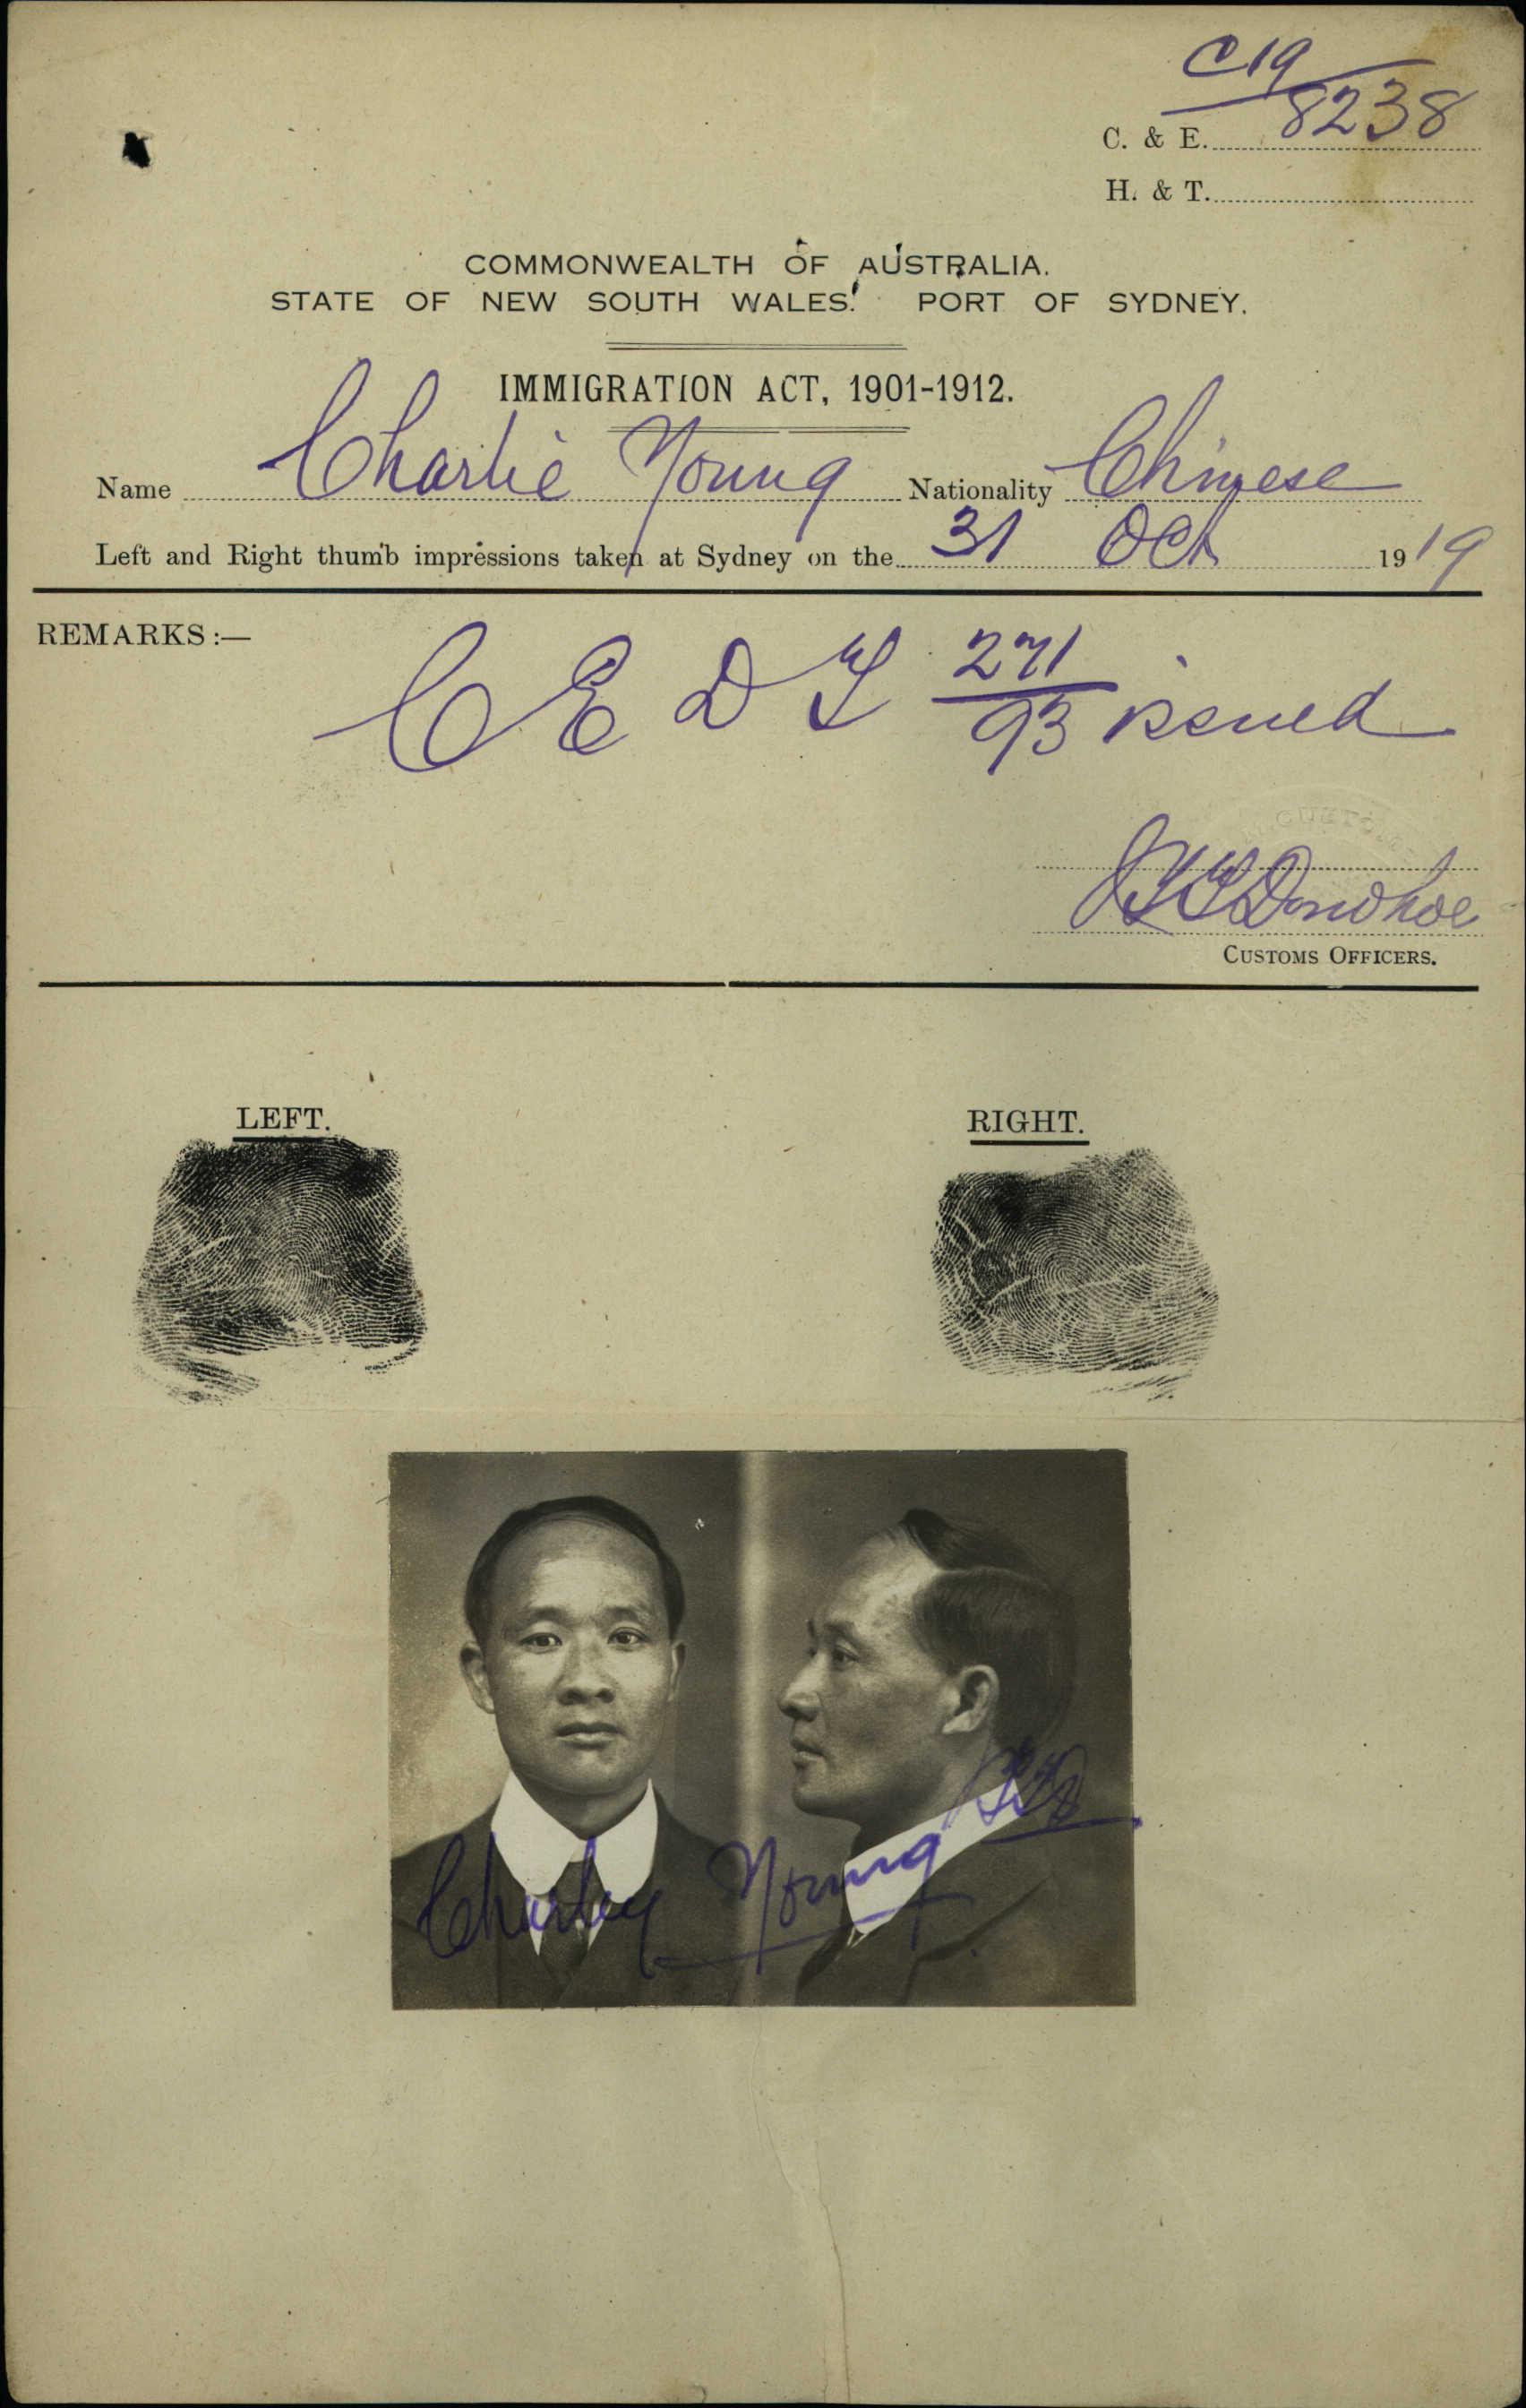 C19
C. & E. 8238
H. & T.
COMMONWEALTH OF AUSTRALIA.
STATE OF NEW SOUTH WALES. PORT OF SYDNEY.
IMMIGRATION ACT, 1901-1912.
Name Charlie Young Nationality Chinese
Left and Right thumb impressions taken at Sydney on the 31 Oct 1919
REMARKS :—
C E D T 271/93 issued
Donohoe
CUSTOMS OFFICERS.
LEFT. RIGHT.
Charley Young